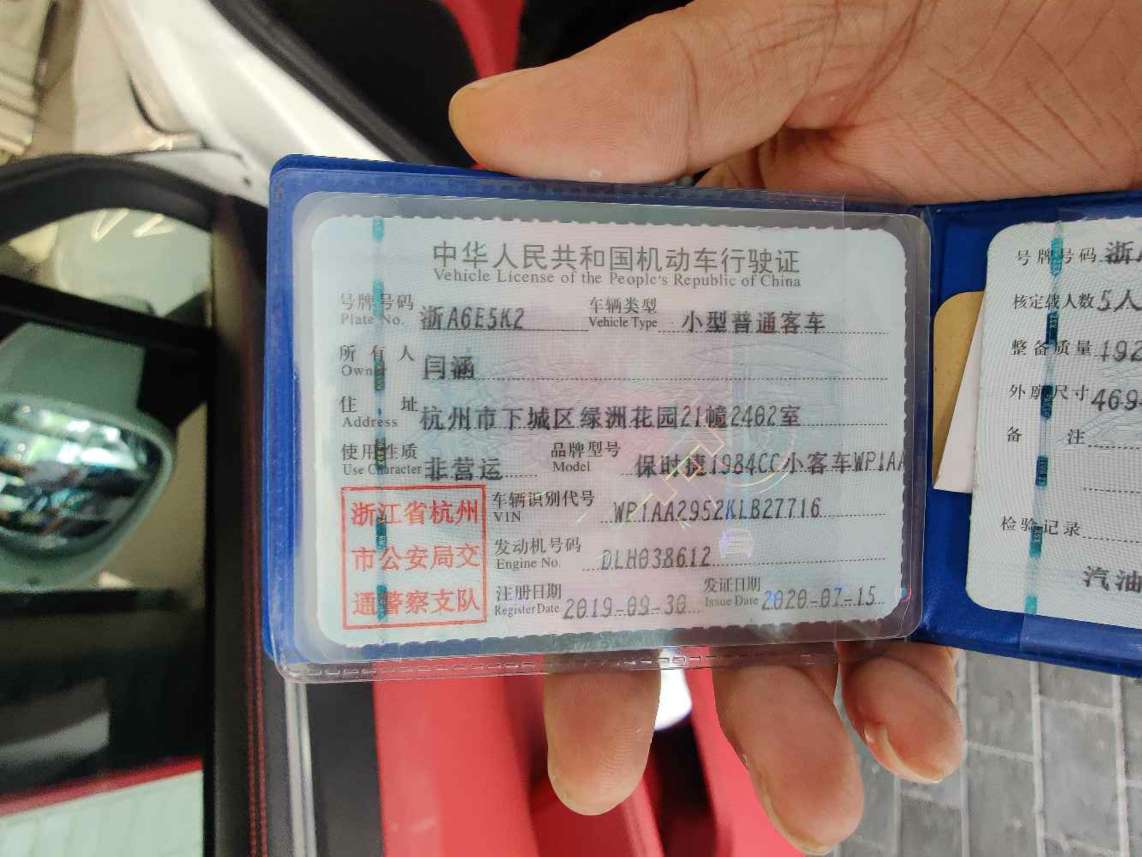 中华人民共和国机动车行驶证
Vehicle License of the People's Republic of China
号牌号码 Plate No. 浙A6E5K2 车辆类型 Vehicle Type 小型普通客车
所有人 Owner 闫涵
住址 Address 杭州市下城区绿洲花园21幢2402室
使用性质 Use Character 非营运 品牌型号 Model 保时捷1984CC小客车WP1AA
车辆识别代号 VIN WP1AA2952KLB27716
发动机号码 Engine No. DLH038612
注册日期 Register Date 2019-09-30 发证日期 Issue Date 2020-07-15
浙江省杭州
市公安局交
通警察支队
号牌号码 浙
核定载人数 5人
整备质量 192
外廓尺寸 469
备注
检验记录
汽油